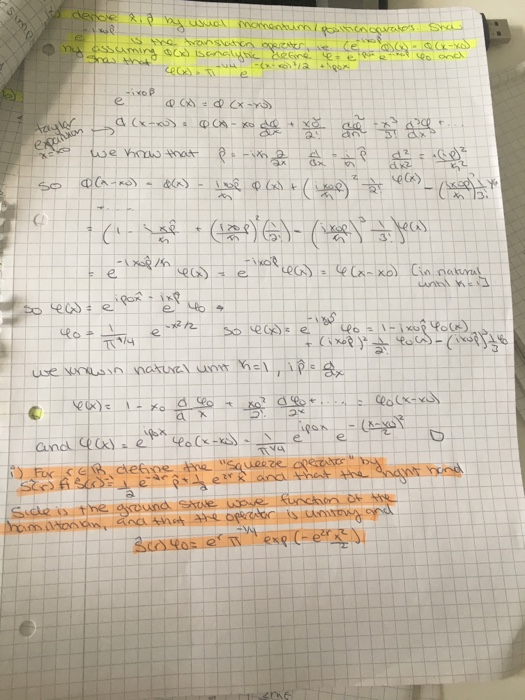 denote x̂, p̂ by usual momentum/position operators. Show
e^{-ix0p̂} is the translation operator, ie (e^{-ix0p̂} φ)(x) = φ(x-x0)
by assuming φ(x) is analytic define φ = e^{ip0x̂} e^{-ix0p̂} φ0 and
show that φ(x) = π^{-1/4} e^{-(x-x0)²/2 + ip0x}
e^{-ix0p̂} φ(x) = φ(x-x0)
taylor expansion → φ(x-x0) = φ(x) - x0 dφ/dx + x0²/2! d²φ/dx² - x³/3! d³φ/dx³ + ...
we know that p̂ = -iħ ∂/∂x d/dx = i/ħ p̂ d²/dx² = (ip̂)²/ħ²
so φ(x-x0) = φ(x) - ix0p̂/ħ φ(x) + (ix0p̂/ħ)² 1/2! φ(x) - (ix0p̂/ħ)³ 1/3!
+ ....
= (1 - ix0p̂/ħ + (ix0p̂/ħ)² (1/2!) - (ix0p̂/ħ)³ 1/3!) φ(x)
= e^{-ix0p̂/ħ} φ(x) = e^{-ix0p̂} φ(x) = φ(x-x0) (in natural
unit ħ=1]
so φ(x) = e^{ip0x̂ - ixp̂} φ0
φ0 = 1/π^{1/4} e^{-x²/2} so φ(x) = e^{-ix0p̂} φ0 = 1 - ix0p̂ φ0(x)
+ (ix0p̂)² 1/2! φ0(x) - (ix0p̂)³ 1/3!
we know in natural unit ħ=1, ip̂ = d/dx
φ(x) = 1 - x0 dφ0/dx + x0²/2! dφ0/2x + ..... = φ0(x-x0)
and φ(x) = e^{ip0x} φ0(x-x0) = 1/π^{1/4} e^{ip0x} e^{-(x-x0)²/2} □
i) For r∈ℝ, define the "squeeze operator" by
Ŝ(r) Ĥ Ŝ(r) = 1/2 e^{-2r} p̂ + 1/2 e^{2r} x̂ and that the right hand
side is the ground state wave function of the
hamiltonian, and that the operator is unitary and
Ŝ(r) φ0 = e^r π^{-1/4} exp(-e^{2r} x²/2)